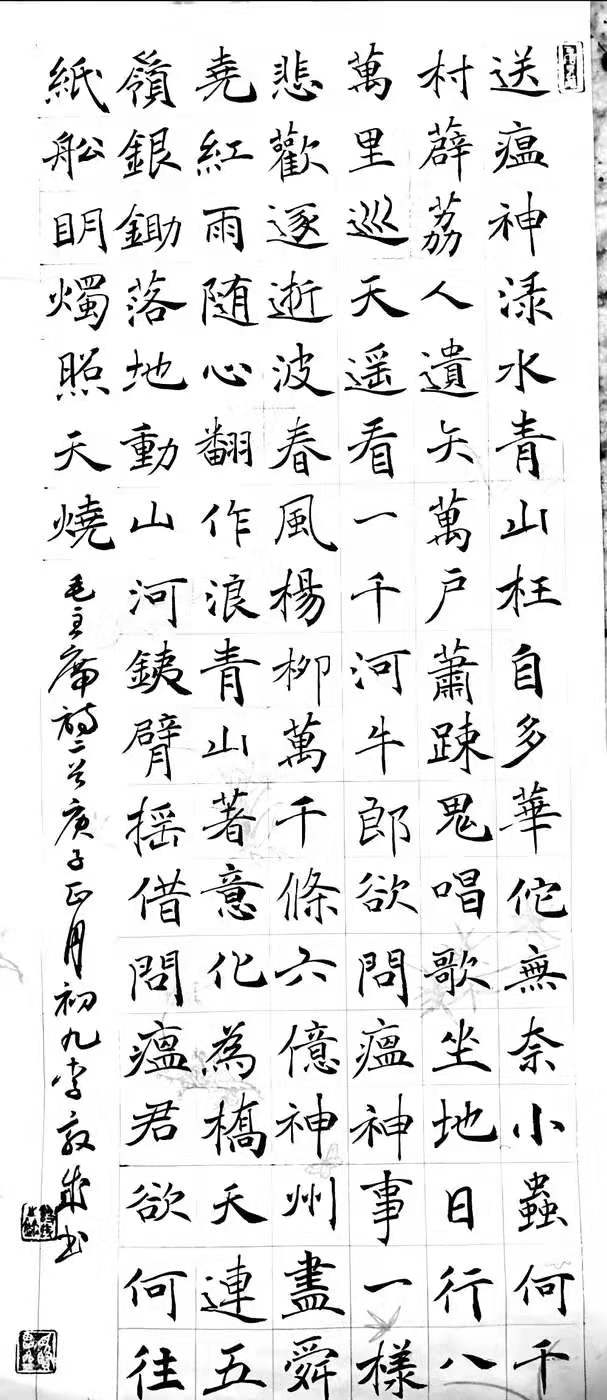 送瘟神渌水青山枉自多華佗無奈小蟲何千
村薜荔人遺矢萬户蕭踈鬼唱歌坐地日行八
萬里巡天遥看一千河牛郎欲問瘟神事一樣
悲歡逐逝波春風楊柳萬千條六億神州盡舜
堯紅雨随心翻作浪青山著意化為橋天連五
嶺銀鋤落地動山河銕臂摇借問瘟君欲何往
紙舩眀燭照天燒
毛主席詩二首庚子正月初九李敦成书